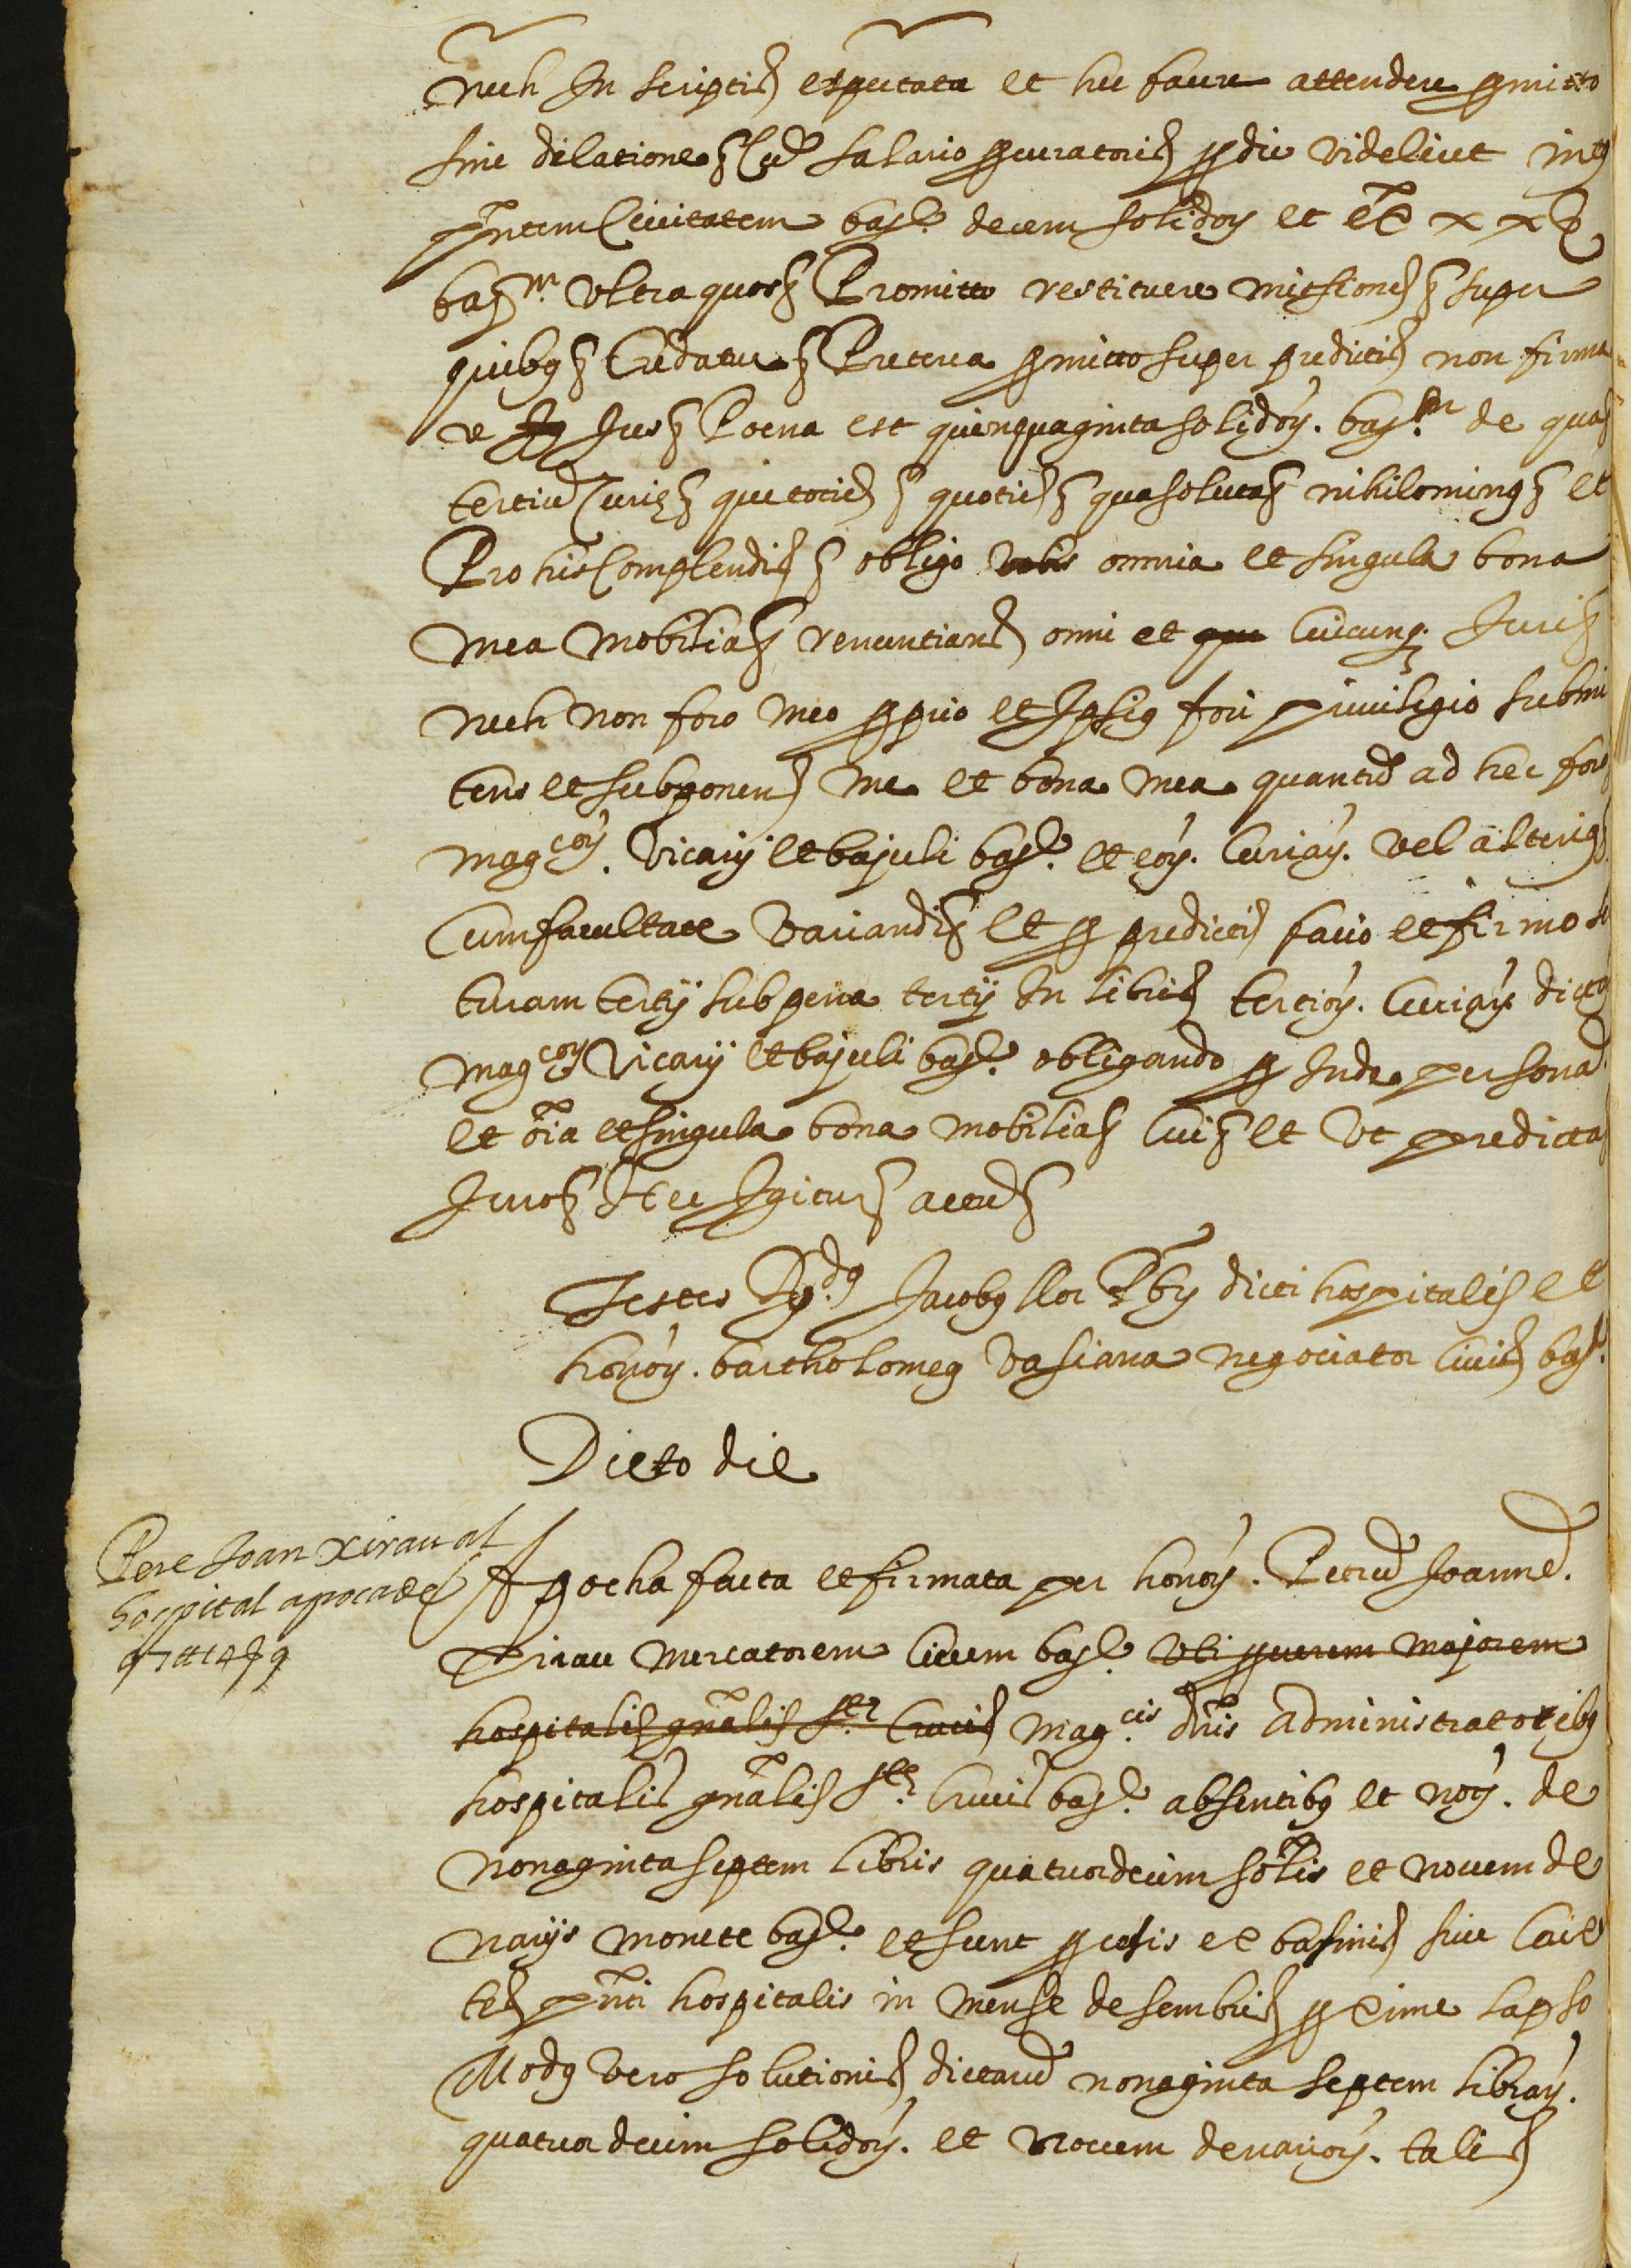 nech In scriptis expectata et hec facere attendere promitto
sine dilatione &c Cum salario procuratoris pro die videlicet infra
pntem Civitatem barne decem solidors et extra x x &
barne ultra quos & Promitto restituere missiones & super
quibus & Credatur & Preterea promitto super predictis non firma
re Jus & Poena est quinquaginta solidors. barne de quas
tertium Curie & que toties & quoties & qua soluta & nihilominus & et
Pro his Complendis & obligo vobis omnia et singula bona
mea mobilia & renuntians omni et que cuicunq. Juri &
nech non foro meo proprio et Ipsius fori privilegio submi
tens et subponens me et bona mea quantum ad hec foro
magcors. Vicarij et bajuli barne et eors. Curiars. vel alterius
Cum facultate variandi & et pro predictis facio et firmo scri
turam tertij sub pena tertij In libris tertiors. Curiars. dictors
magcors Vicarij et bajuli barne obligando pro Inde personam
et oia et singula bona mobilia & Cui & et Ut predicta
Juro & Hec Igitur & actum &
Testes Rdus Jacobus llor Pbr dicti hospitalis et
honors. bartholomeus vasiana negociator Civis barne
Dicto die
Pere Joan Xirau al
hospital apoca de
97 ll 14 s 9
Apocha facta et firmata per honors. Petrum Joannem.
Xirau mercatorem Civem barne uti priorem majorem
hospitalis gnalis Ste Crucis magcis dnis Administratoribus
hospitalis gnalis Ste Crucis barne absentibus et nors. de
nonaginta septem libris quatuordecim solis et novem de
narijs monete barne et sunt pro censis et basinis sive Caie
tes pnti hospitalis in mense desembris proxime lapso
Modus vero solutionis dictarum nonaginta septem librars.
quatuordecim solidors. et novem denariors. talis